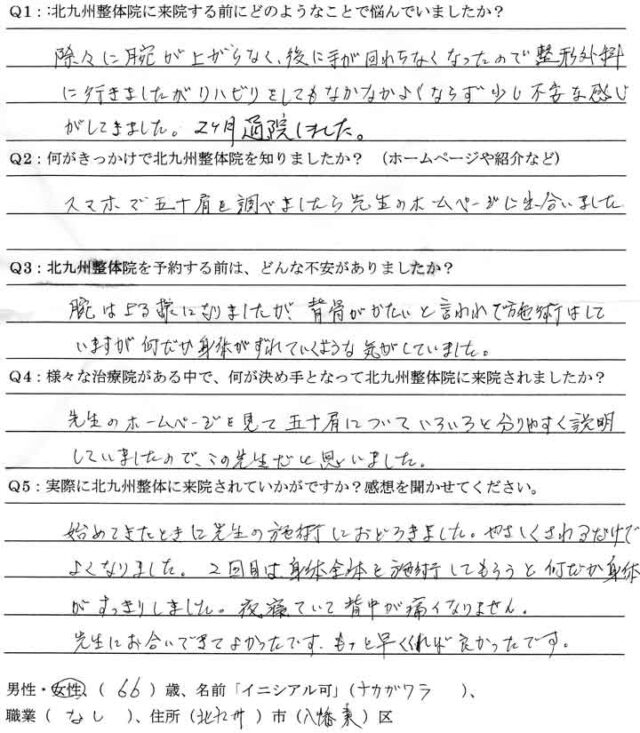 Q1：:北九州整体院に来院する前にどのようなことで悩んでいましたか？
除々に腕が上がらなく、後に手が回わらなくなったので整形外科
に行きましたがリハビリをしてもなかなかよくならず少し不安な感じ
がしてきました。2ヶ月通院しました。
Q2：何がきっかけで北九州整体院を知りましたか？　（ホームページや紹介など）
スマホで五十肩を調べましたら先生のホームページに出合いました
Q3：北九州整体院を予約する前は、どんな不安がありましたか？
腕は上る様になりましたが、背骨がかたいと言われて施術はして
いますが何だか身体がずれていくような気がしていました。
Q4：様々な治療院がある中で、何が決め手となって北九州整体院に来院されましたか？
先生のホームページを見て五十肩についていろいろと分りやすく説明
していましたので、この先生だと思いました。
Q5：実際に北九州整体に来院されていかがですか？感想を聞かせてください。
始めてきたときに先生の施術におどろきました。やさしくされるだけで
よくなりました。2回目は身体全体を施術してもらうと何だか身体
がすっきりしました。夜寝ていて背中が痛くなりません。
先生にお合いできてよかったです。もっと早くくれば良かったです。
男性・女性、（ 66 ）歳、名前「イニシアル可」（ナカガワラ　）、
職業（ なし ）、住所（北九州 ）市（八幡東）区